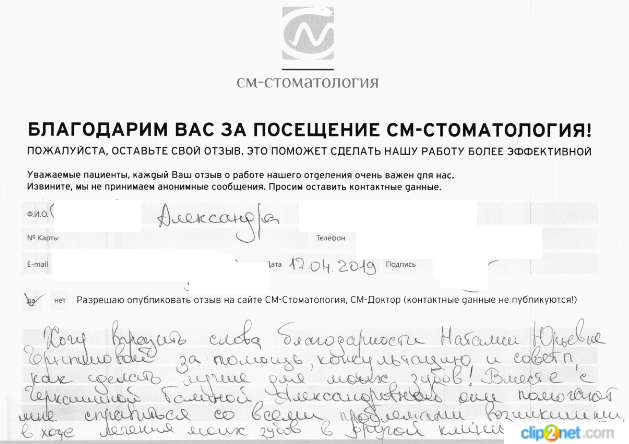 см-стоматология
БЛАГОДАРИМ ВАС ЗА ПОСЕЩЕНИЕ СМ-СТОМАТОЛОГИЯ!
ПОЖАЛУЙСТА, ОСТАВЬТЕ СВОЙ ОТЗЫВ. ЭТО ПОМОЖЕТ СДЕЛАТЬ НАШУ РАБОТУ БОЛЕЕ ЭФФЕКТИВНОЙ
Уважаемые пациенты, каждый Ваш отзыв о работе нашего отделения очень важен для нас.
Извините, мы не принимаем анонимные сообщения. Просим оставить контактные данные.
Ф.И.О. Александра
№ Карты Телефон
E-mail Дата 17.04.2019 Подпись
да нет Разрешаю опубликовать отзыв на сайте СМ-Стоматология, СМ-Доктор (контактные данные не публикуются!)
Хочу выразить слова благодарности Наталии Юрьевне
за помощь, консультацию и совет,
как сделать лучше для моих зубов! Вместе с
Галиной Александровной они помогают
мне справиться со всеми проблемами возникшими
в ходе лечения моих зубов в другой
clip2net.com